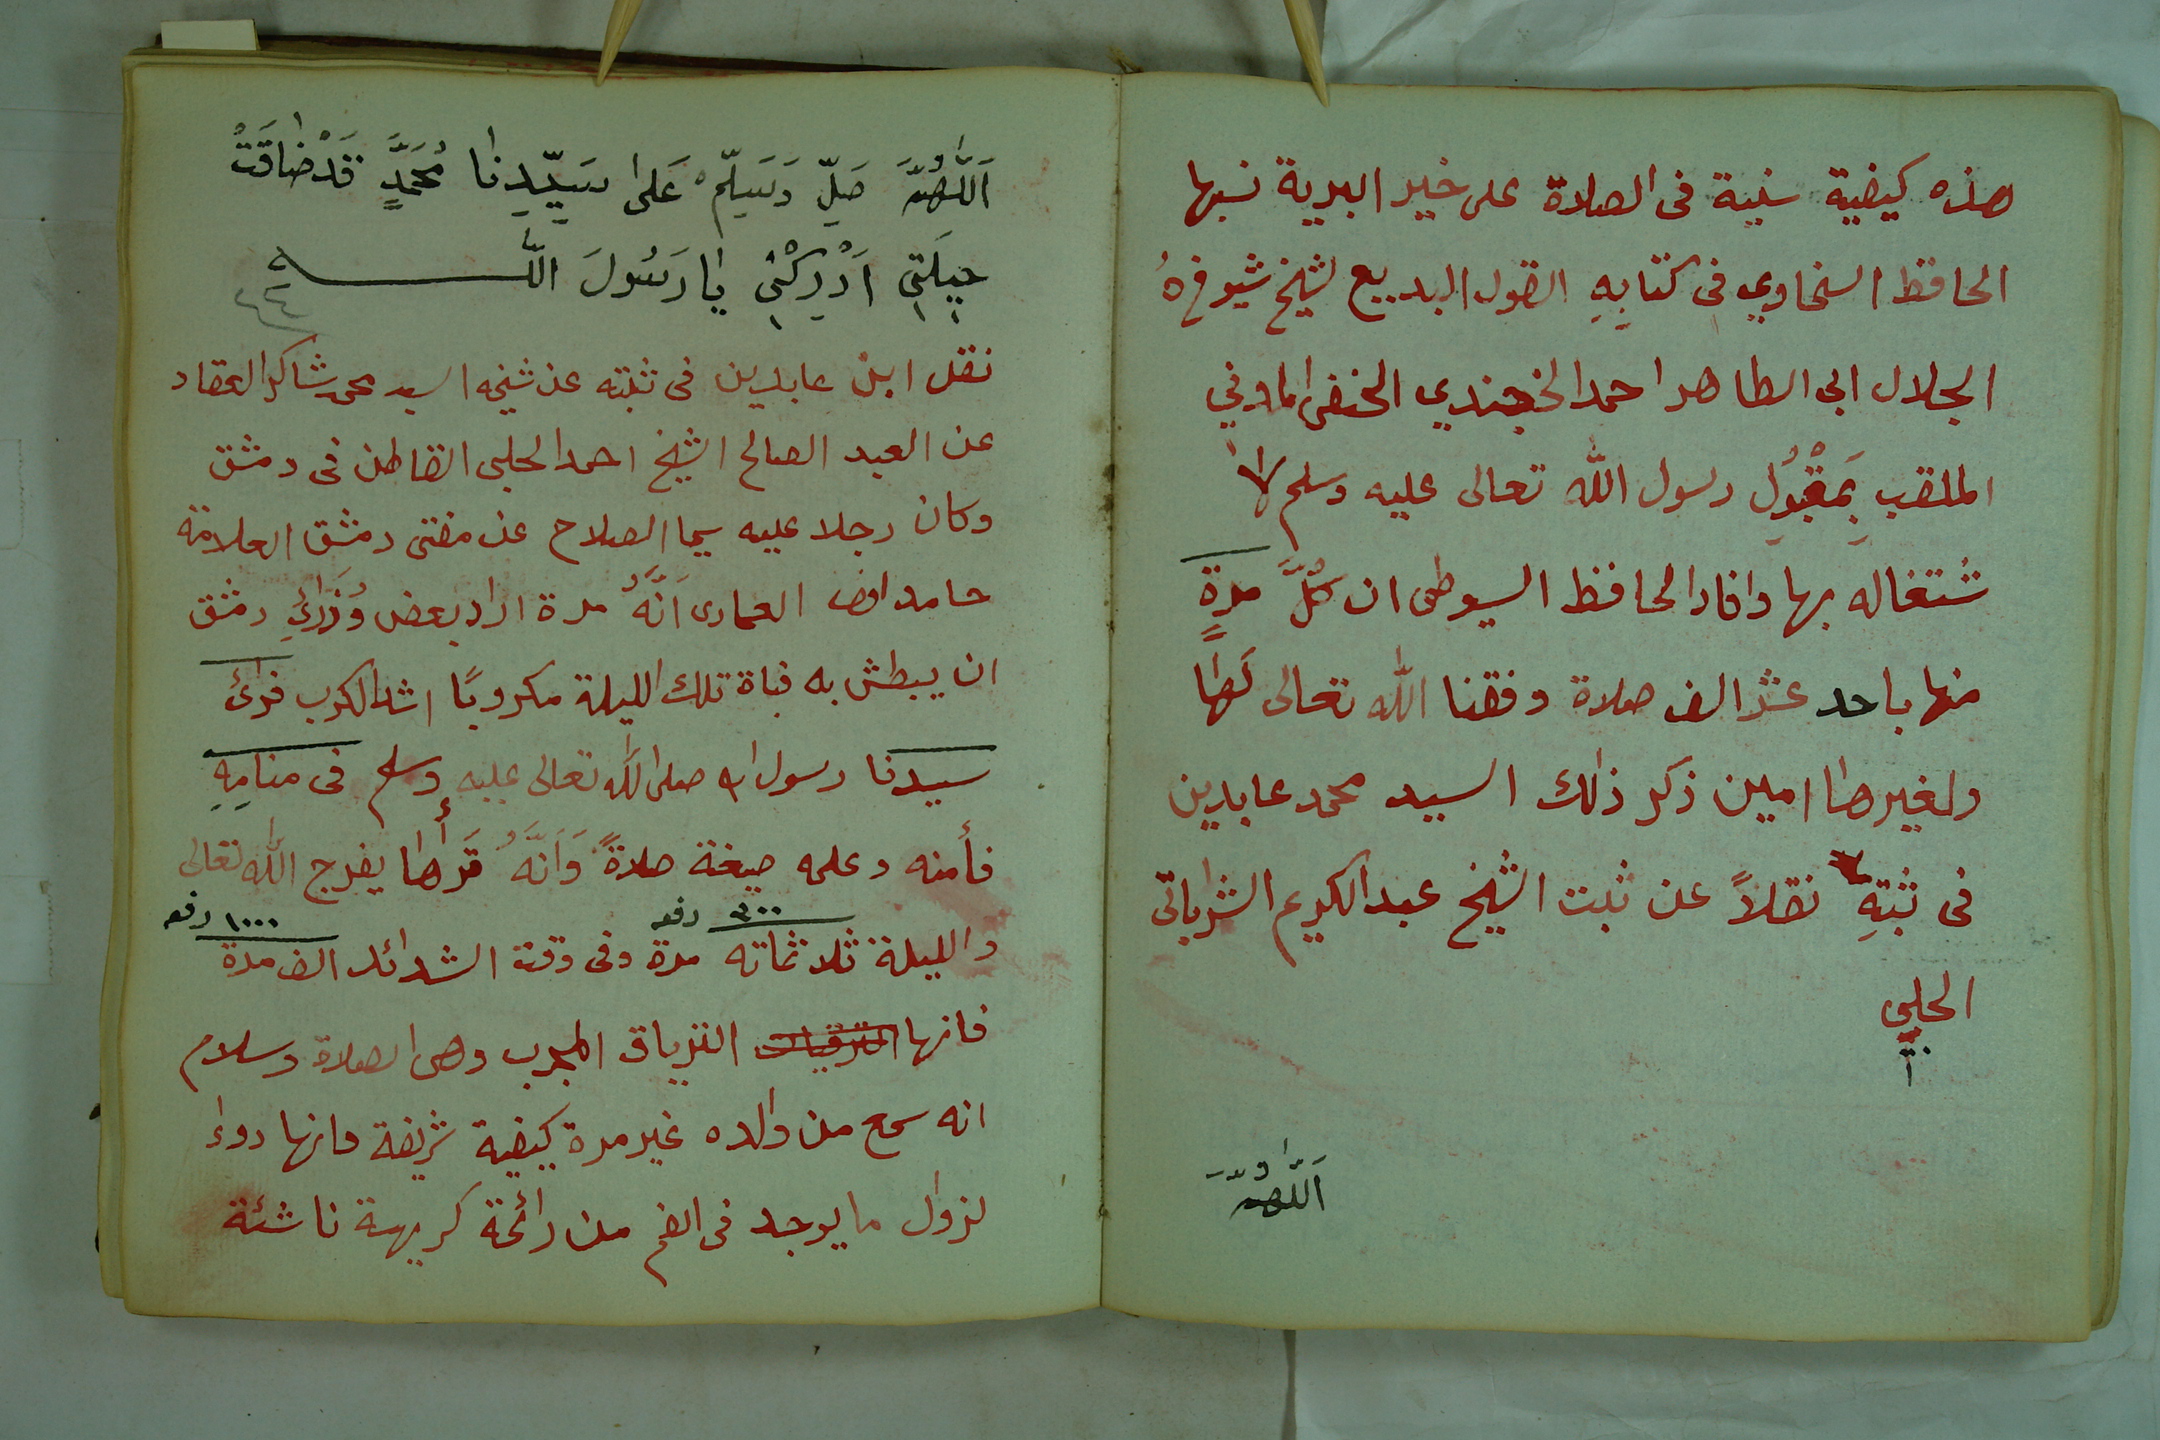 هذه كيفية سنية فى الصلاة على خير البرية نسبها
الحافظ السخاوي فى كتابِهِ القول البديع لشيخ شيوخهُ
الجلال ابى الطاهر احمد الخجندي الحنفى المدنى
الملقب بَمقْبُولِ رسول الله تعالى عليه وسلم لا
شتغاله بها وافاد الحافظ السيوطى ان كُلَّ مرةٍ
منها باحد عشر الف صلاة وفقنا الله تعالى لَها
ولغيرها امين ذكر ذلك السيد محمد عابدين
فى ثبتِهِ نقلاً عن ثبت الشيخ عبد الكريم الشراباتى
الحلبى
اَللّهُمَّ
اَللّهُمَّ صَلِّ وَسَلِّمْ عَلى سَيِّدِنا مُحَمَّدٍ قَدْ ضاقَتْ
حيلَتي اَدْرِكْني يا رَسُولَ اللّه
٤٤
نقل ابن عابدين فى ثبته عن شيخه السيد محمد شاكر العقاد
عن العبد الصالح الشيخ احمد الحلبى القاطن فى دمشق
وكان رجلا عليه سيما الصلاح عن مفتى دمشق العلامة
حامد افن العمادى اَنَّهُ مرة اراد بعض وُزَرائِ دمشق
ان يبطش به فباة تلك الليلة مكروبًا اشد الكرب فرائ
سيدنا رسول الله صلى الله تعالى عليه وسلم فى منامِهِ
فأمنه وعلمه صيغة صلاةً وَاَنَّهُ قَرأها يفرج الله تعالى
٣٠٠ دفعه ١٠٠٠ دفعه
والليلة ثلاثمائه مرة وفى وقت الشدائد الف مرة
فانها الترياق المجرب وهى الصلاة وسلام
انه سمع من والده غير مرة كيفية شريفة فانها دواء
لزوال ما يوجد فى الفم من رائحة كريهة ناشئة